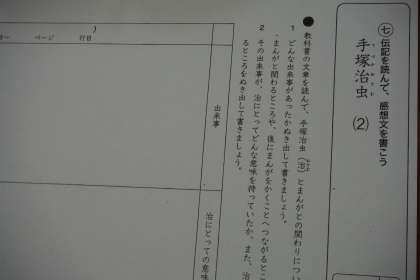 七 伝記を読んで、感想文を書こう
手塚治虫 (2)
てづかおさむ
● 教科書の文章を読んで、手塚治虫(治)とまんがとの関わりについ
おさむ
1 どんな出来事があったかぬき出して書きましょう。
まんがと関わるところや、後にまんがをかくことへつながるとこ
2 その出来事が、治にとってどんな意味を持っていたか、また、治
るところをぬき出して書きましょう。
出来事
治にとっての意味
ページ 行目